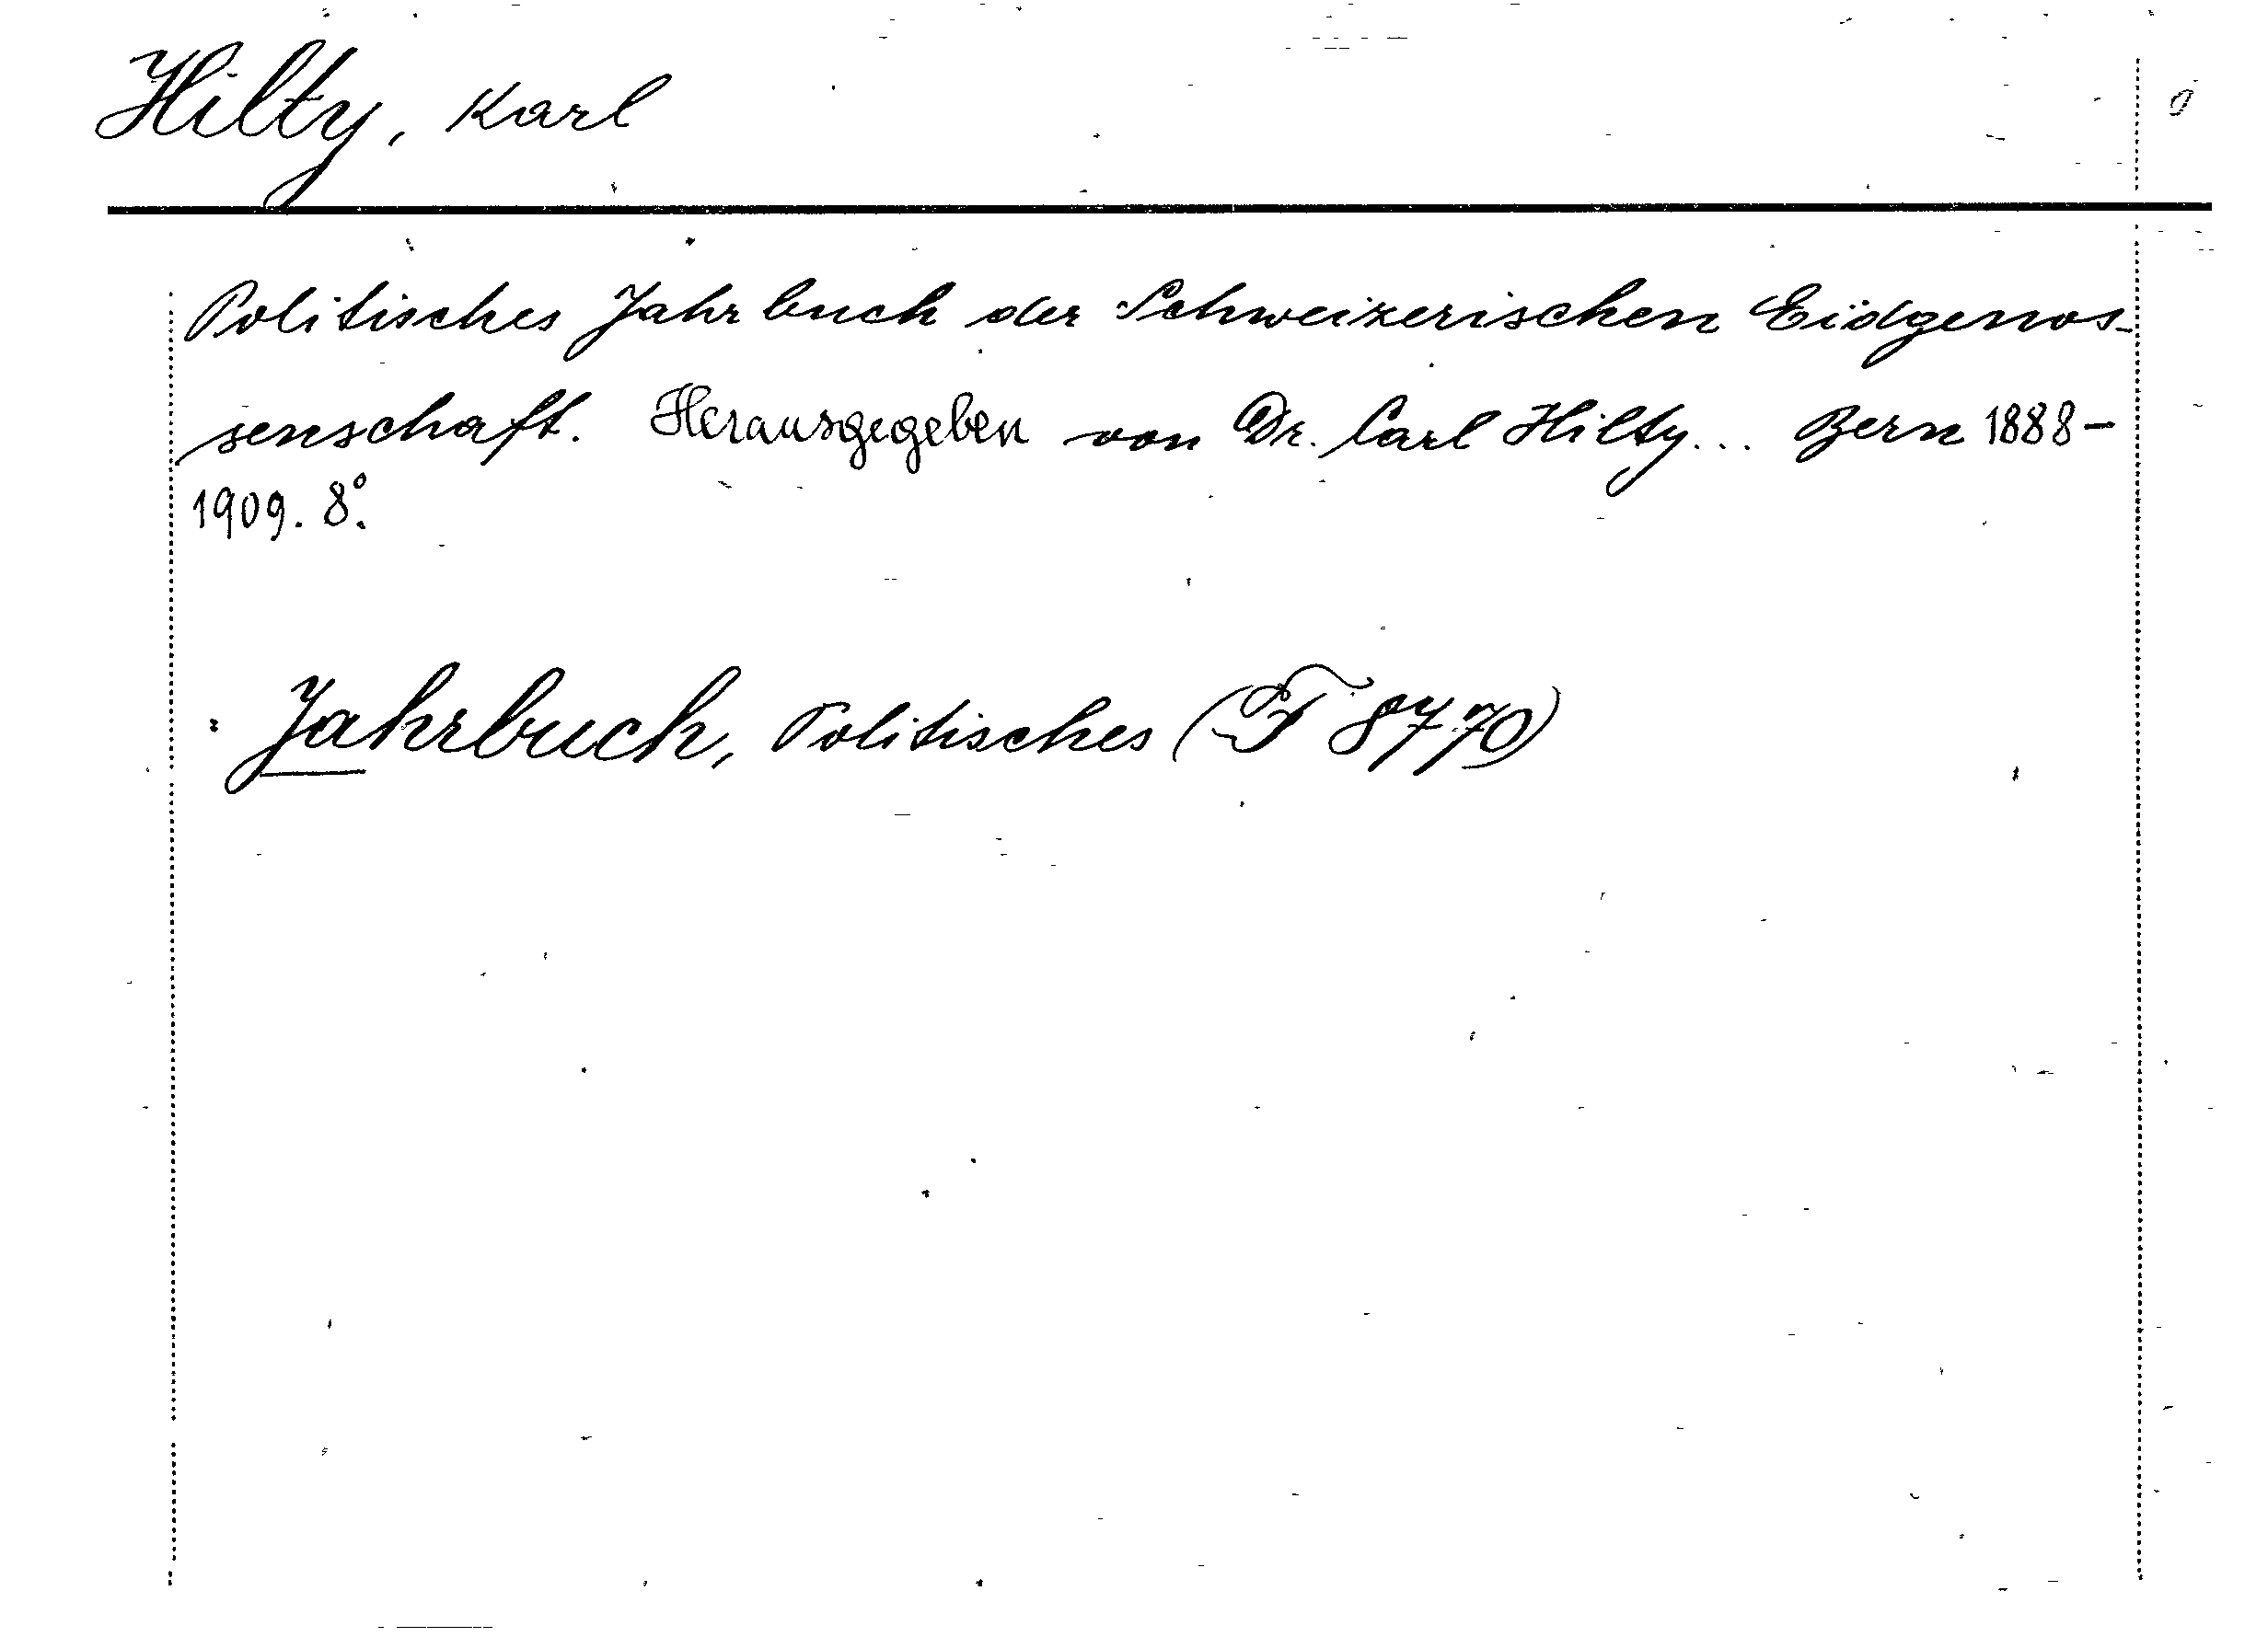 Hilty, Karl
Politisches Jahrbuch der Schweizerischen Eidgenos-
senschaft. Herausgegeben von Dr. Carl Hilty... Bern 1888-
1909. 8°.
: Jahrbuch, Politisches (F 8770)